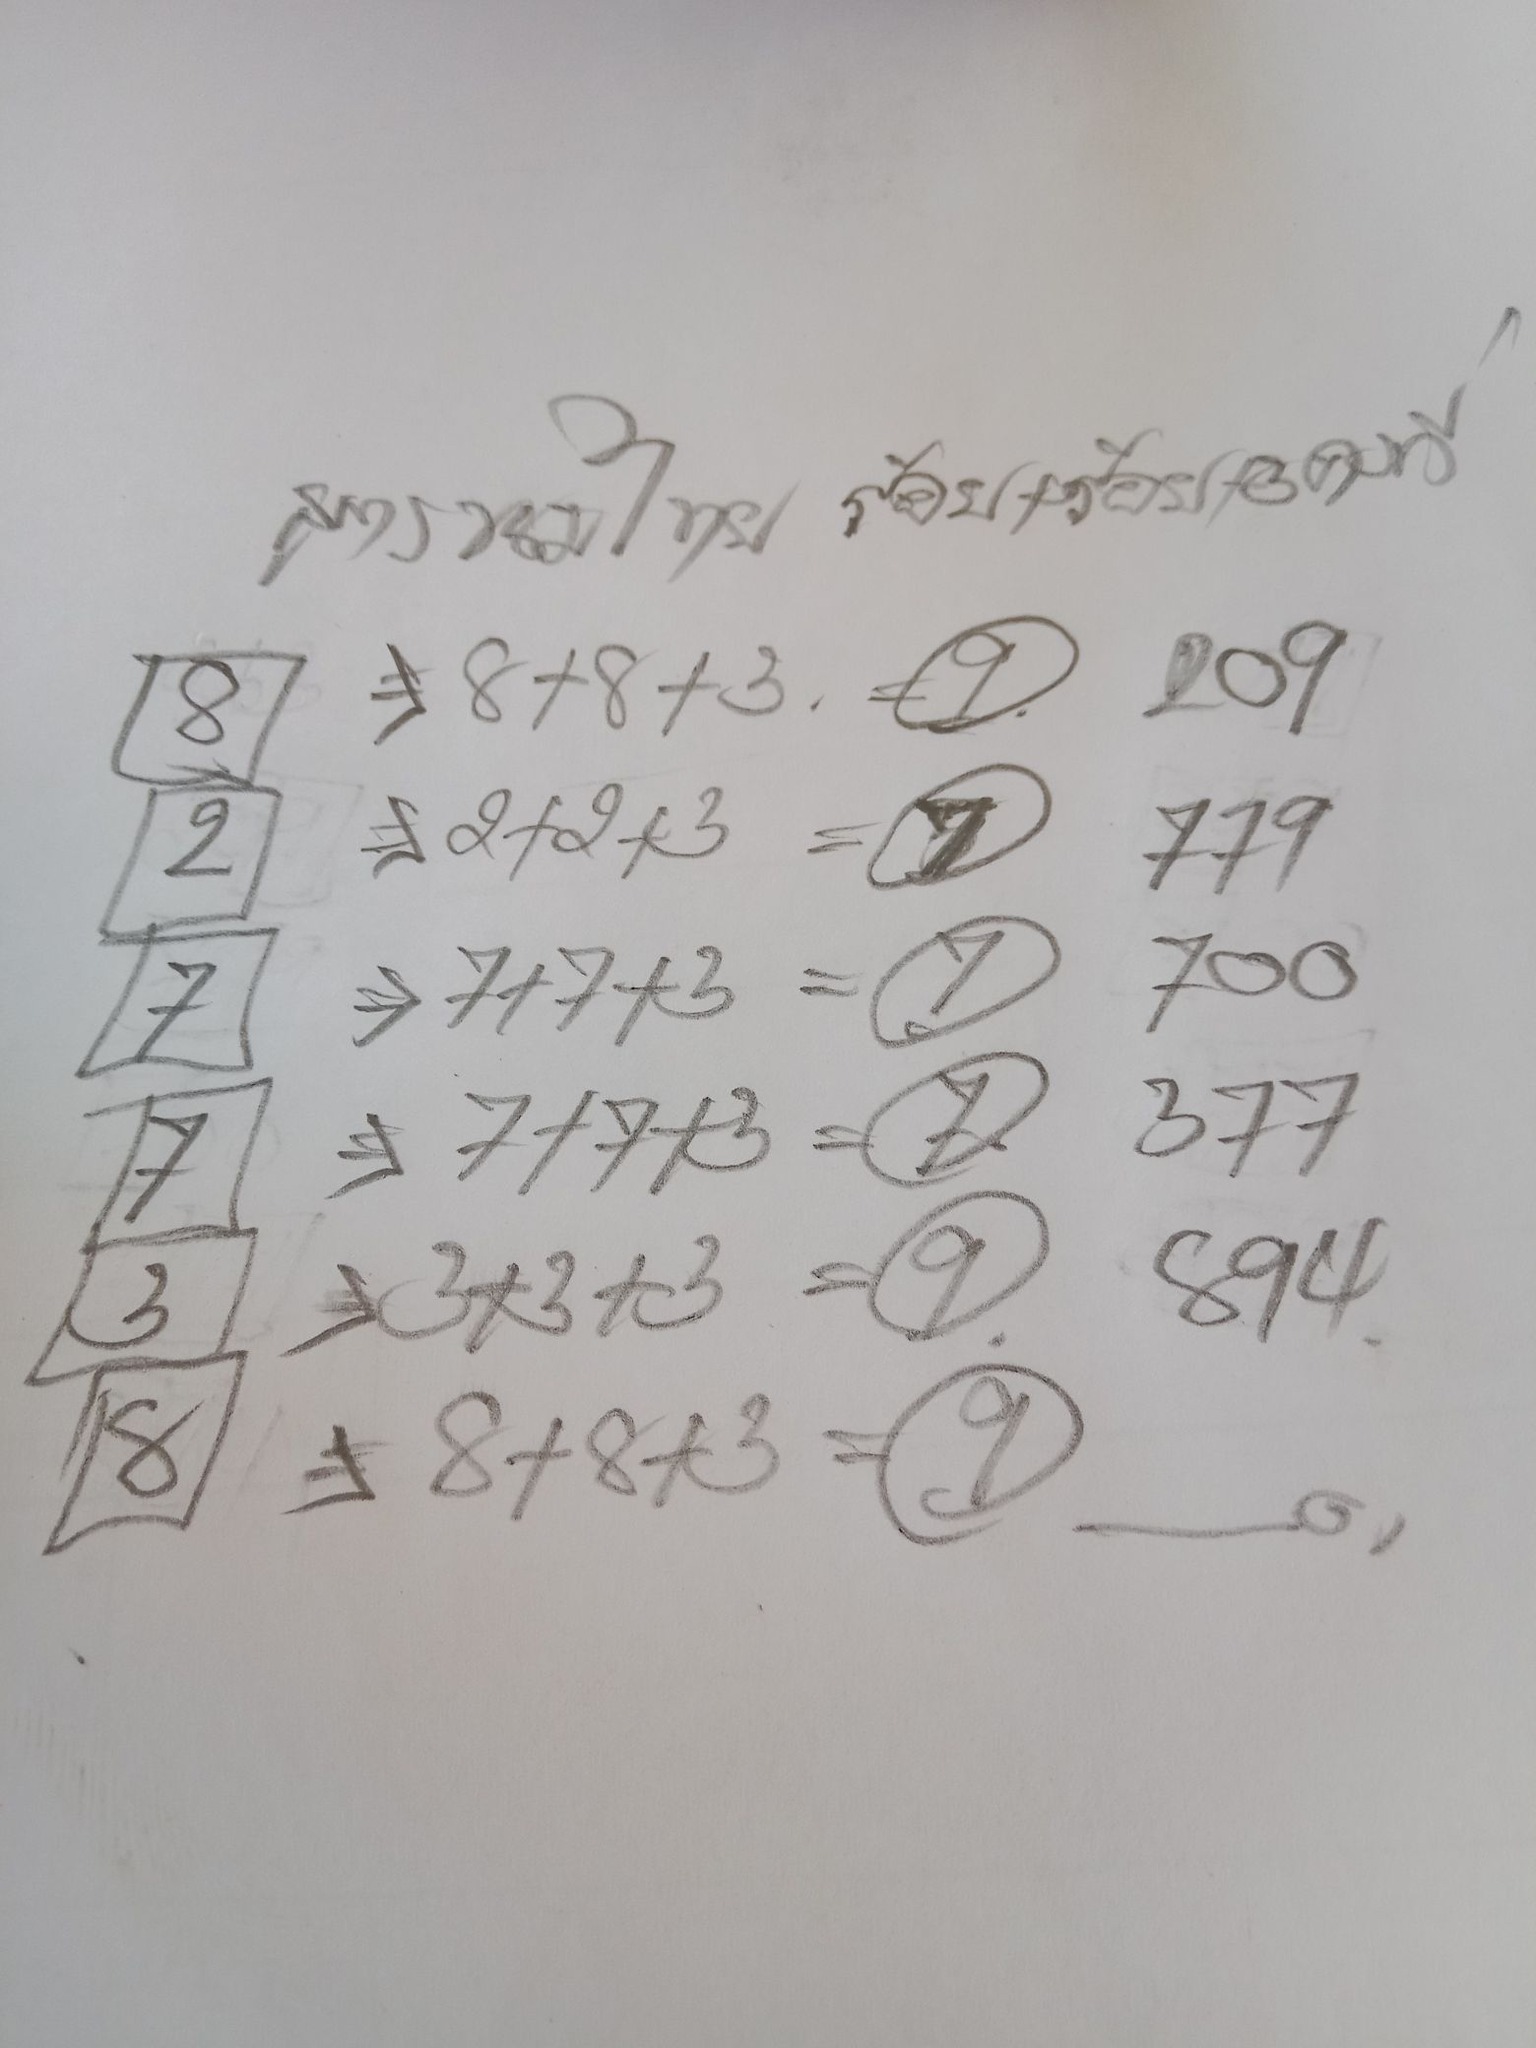 สูตร ไทย ร้อย+ร้อย+3คงที่
8 ⇒ 8+8+3. = 9. 209
2 ⇒ 2+2+3 = 7 779
7 ⇒ 7+7+3 = 7 700
7 ⇒ 7+7+3 = 7. 377
3 ⇒ 3+3+3 = 9. 894.
8 ⇒ 8+8+3 = 9